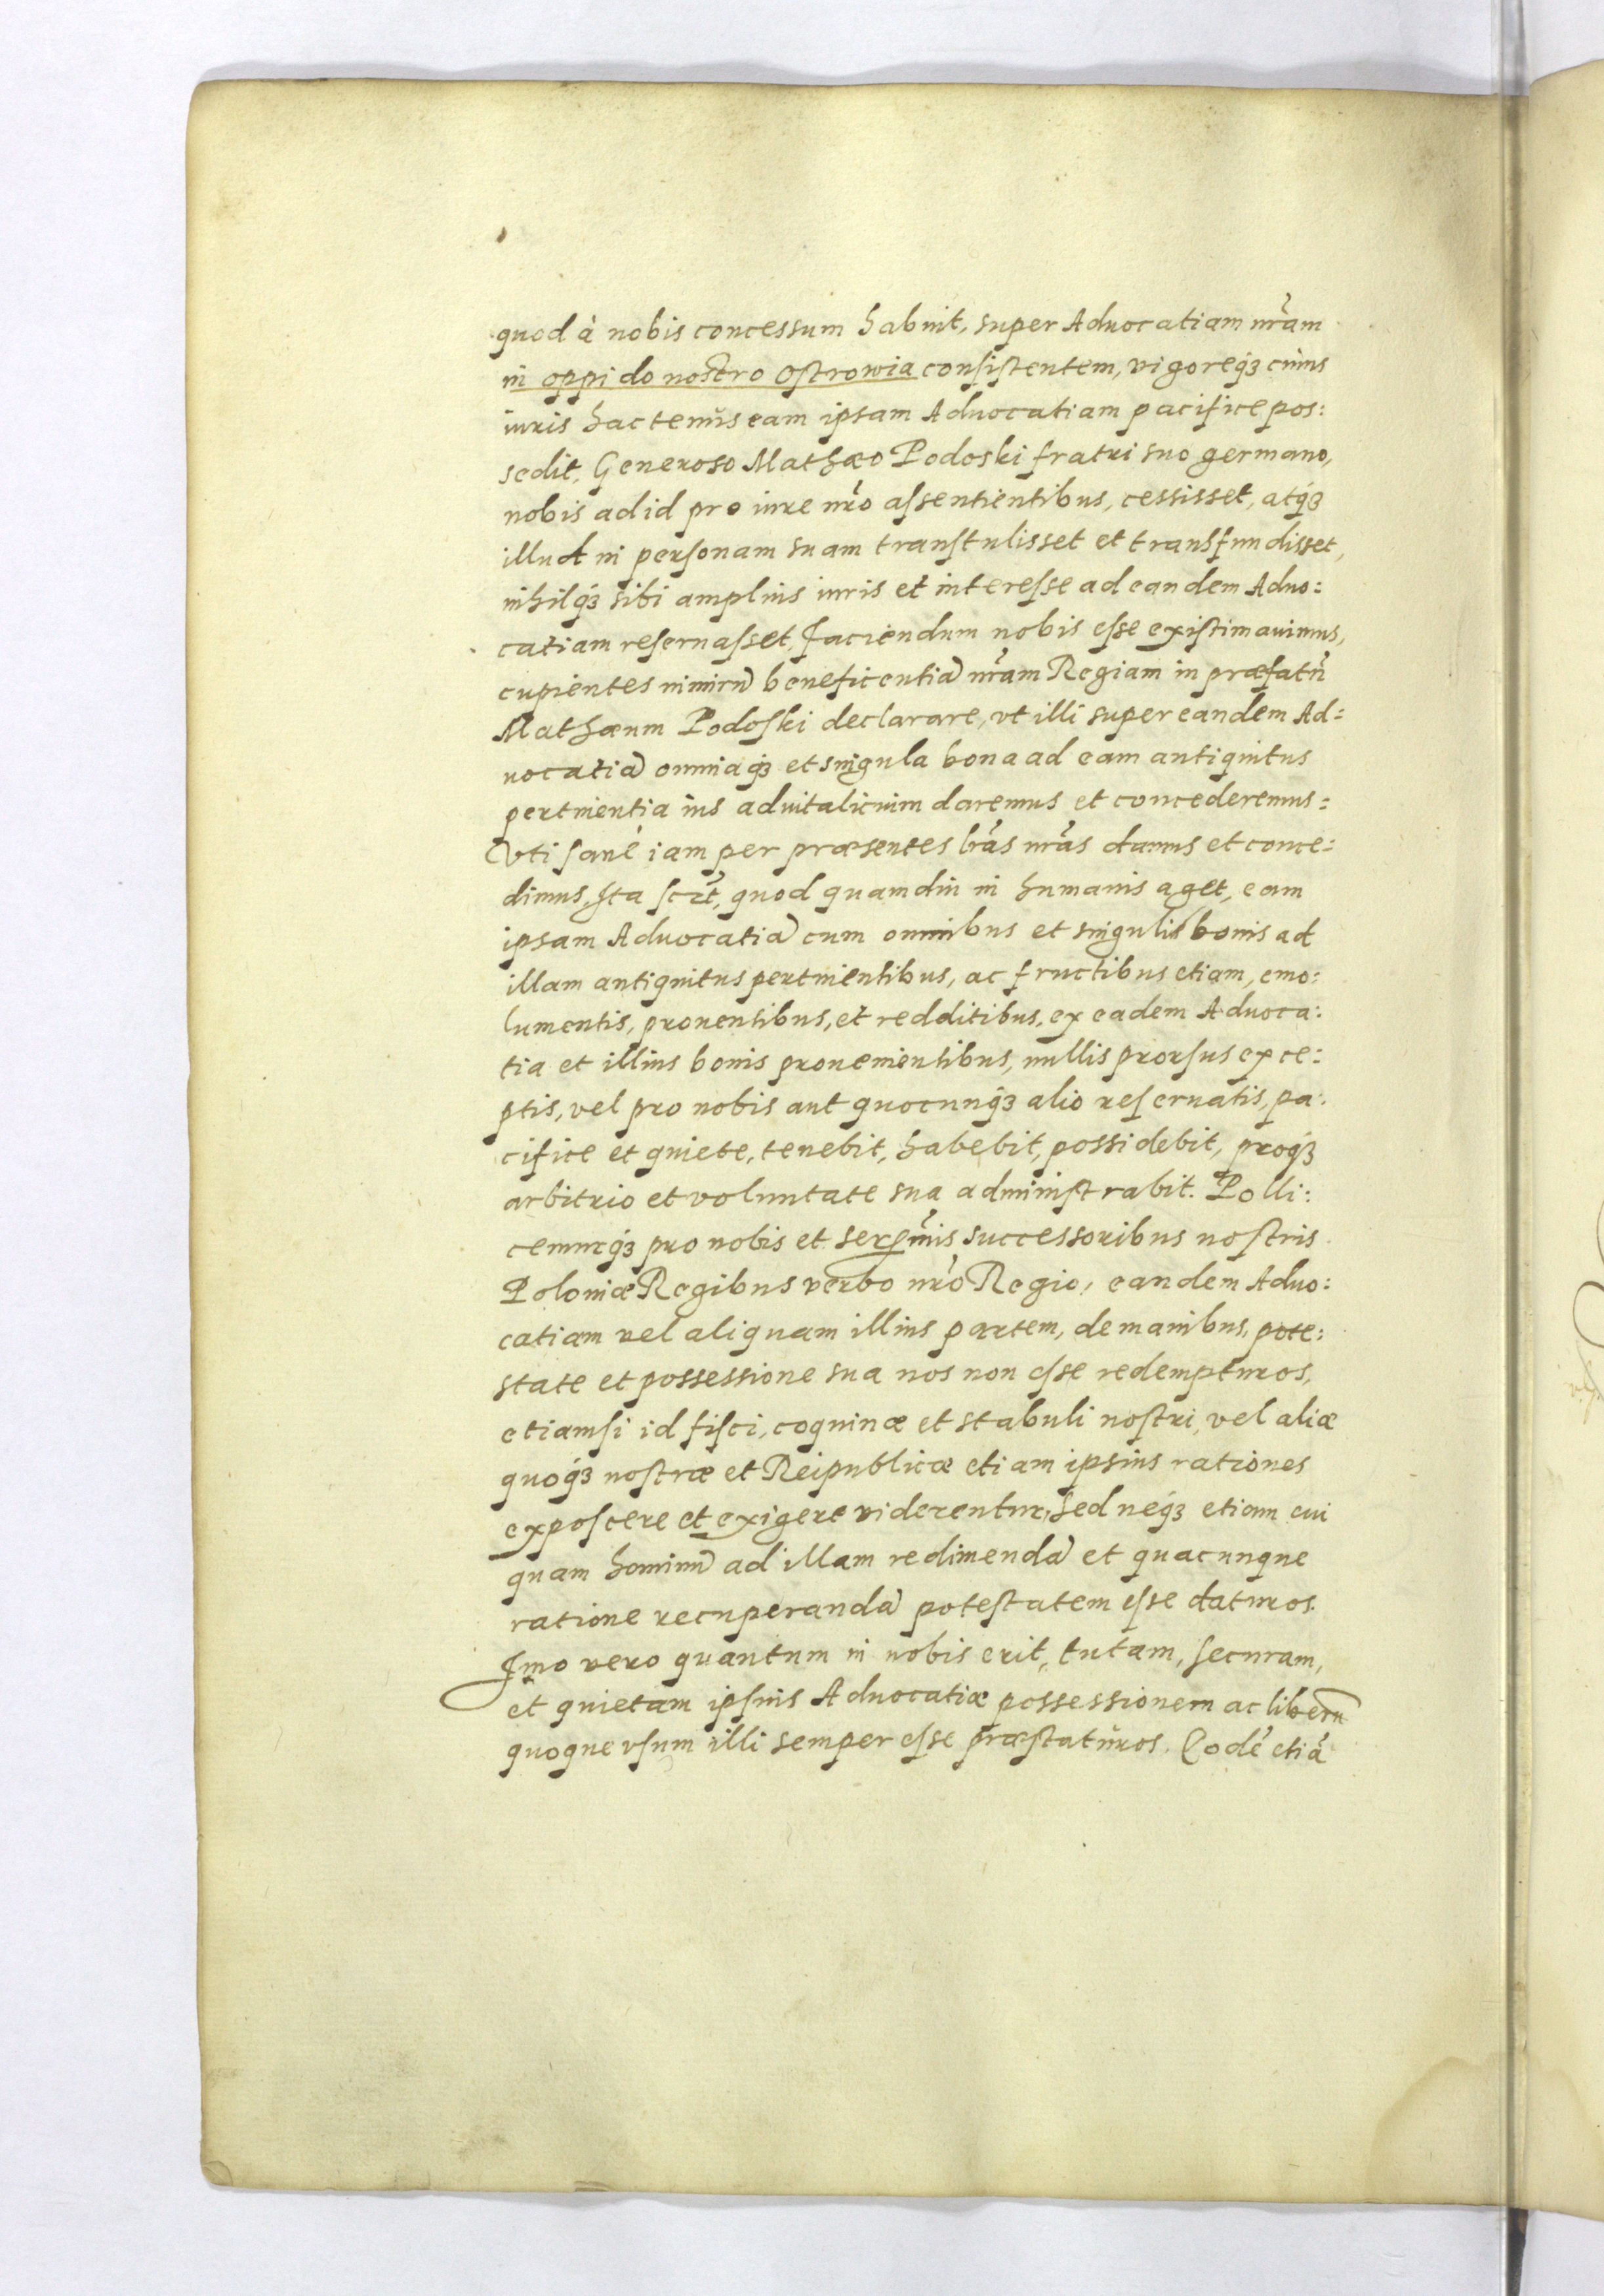 quod à nobis concessum habuit, super Aduocatiam nr̃am
in oppido nostro Ostrowia consistentem, vigoreq́ꝫ cuius
iuris hactenùs eam ipsam Aduocatiam pacifice pos:
sedit, Generoso Mathæo Podoski fratri suo germano,
nobis ad id pro iure nr̃o assentientibus, cessisset, atq́ꝫ
illud in personam suam transtulisset et transfundisset,
nihilq́ꝫ sibi amplius iuris et interesse ad eandem Aduo:
catiam reseruasset, Faciendum nobis esse existimauimus,
cupientes nimirũ beneficentiã nr̃am Regiam in præfatũ
Mathæum Podoski declarare, vt illi super eandem Ad:
uocatiã omniaq́ꝫ et singula bona ad eam antiquitus
pertinentia ius aduitalicium daremus et concederemus:
Vti sanè iam per præsentes lr̃as nr̃as damus et conce:
dimus, Ita sczt̃, quod quamdiu in humanis aget, eam
ipsam Aduocatiã cum omnibus et singulis bonis ad
illam antiquitus pertinentibus, ac fructibus etiam, emo:
lumentis, prouentibus, et redditibus, ex eadem Aduoca:
tia et illius bonis prouenientibus, nullis prorsus exce:
ptis, vel pro nobis aut quocunq́ꝫ alio reseruatis, pa:
cifice et quiete, tenebit, habebit, possidebit, proq́ꝫ
arbitrio et voluntate sua administrabit. Polli:
cemurq́ꝫ pro nobis et serm̃is successoribus nostris
Poloniæ Regibus verbo nr̃o Regio, eandem Aduo:
catiam vel aliquam illius partem, de manibus, pote:
state et possessione sua nos non esse redempturos,
etiamsi id fisci, coquinæ et stabuli nostri, vel aliæ
quoq́ꝫ nostræ et Reipublicæ etiam ipsius rationes
exposcere et exigere viderentur, Sed neq́ꝫ etiam cui
quam hominũ ad illam redimendã et quacunque
ratione recuperandã potestatem esse daturos.
Imo vero quantum in nobis erit, tutam, securam,
et quietam ipsius Aduocatiæ possessionem ac liberũ
quoque vsum illi semper esse præstatùros. Eodẽ etiã